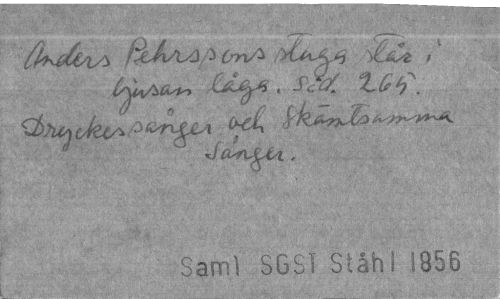 Anders Pehrssons stuga står i
ljusan låga. Sid. 265.
Dryckessånger och Skämtsamma
Sånger.
Saml SGST Ståhl 1856